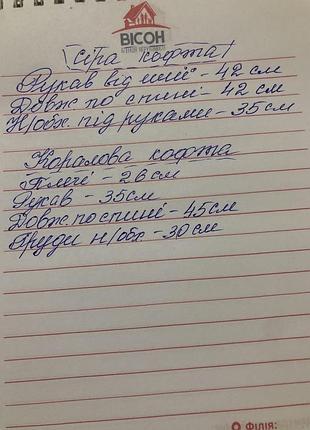 ВІСОН
АГЕНЦІЯ НЕРУХОМОСТІ
Сіра кофта
Рукав від шиї - 42 см
Довж по спині - 42 см
Н/обх. під руками - 35 см
Коралова кофта
Плечі - 26 см
Рукав - 35 см
Довж. по спині - 45 см
Груди н/обх - 30 см
Філія: